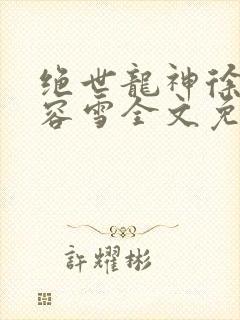 绝世龍神徐
容雪全文免
許耀彬